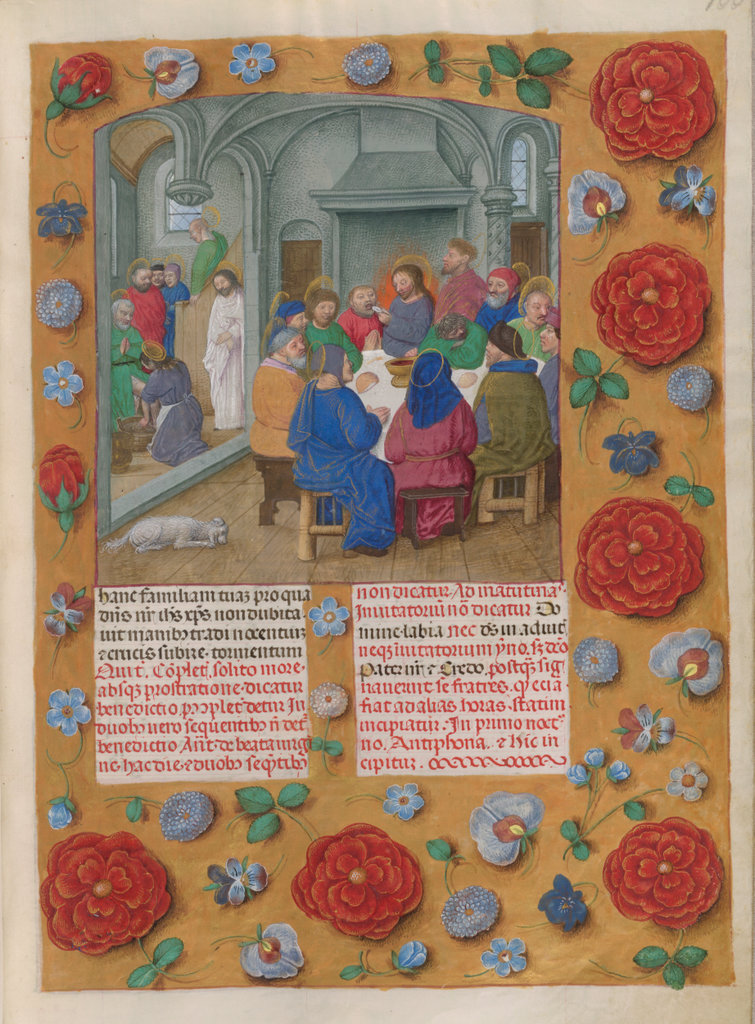 hanc familiam tuaz pro qua
dn̄s nr̄ ih̄s xp̄s non dubita
uit manibꝫ tradi nocentuiz
⁊ crucis subire tormentum
Quīt. Cōplet̄ solito more
absqꝫ prostratione dicatur
benedictio
duobꝫ uero sequentibꝫ n̄ det̄
benedictio Ant̄ de beata uirgi
ne hac die ⁊ duobꝫ seqn̄tibꝫ
non dicatur Ad matutinas
Inuitatoriū nō dicatur Do
mine labia nec ds̄ in adiut̄
neqꝫ inuitatorium
Pater nr̄ ⁊ Credo postqꝫ sig
nauerint se fratres
fiat ad alias horas statim
incipiatur In primo noct̄
no. Antiphona. ⁊ hic in
cipitur.